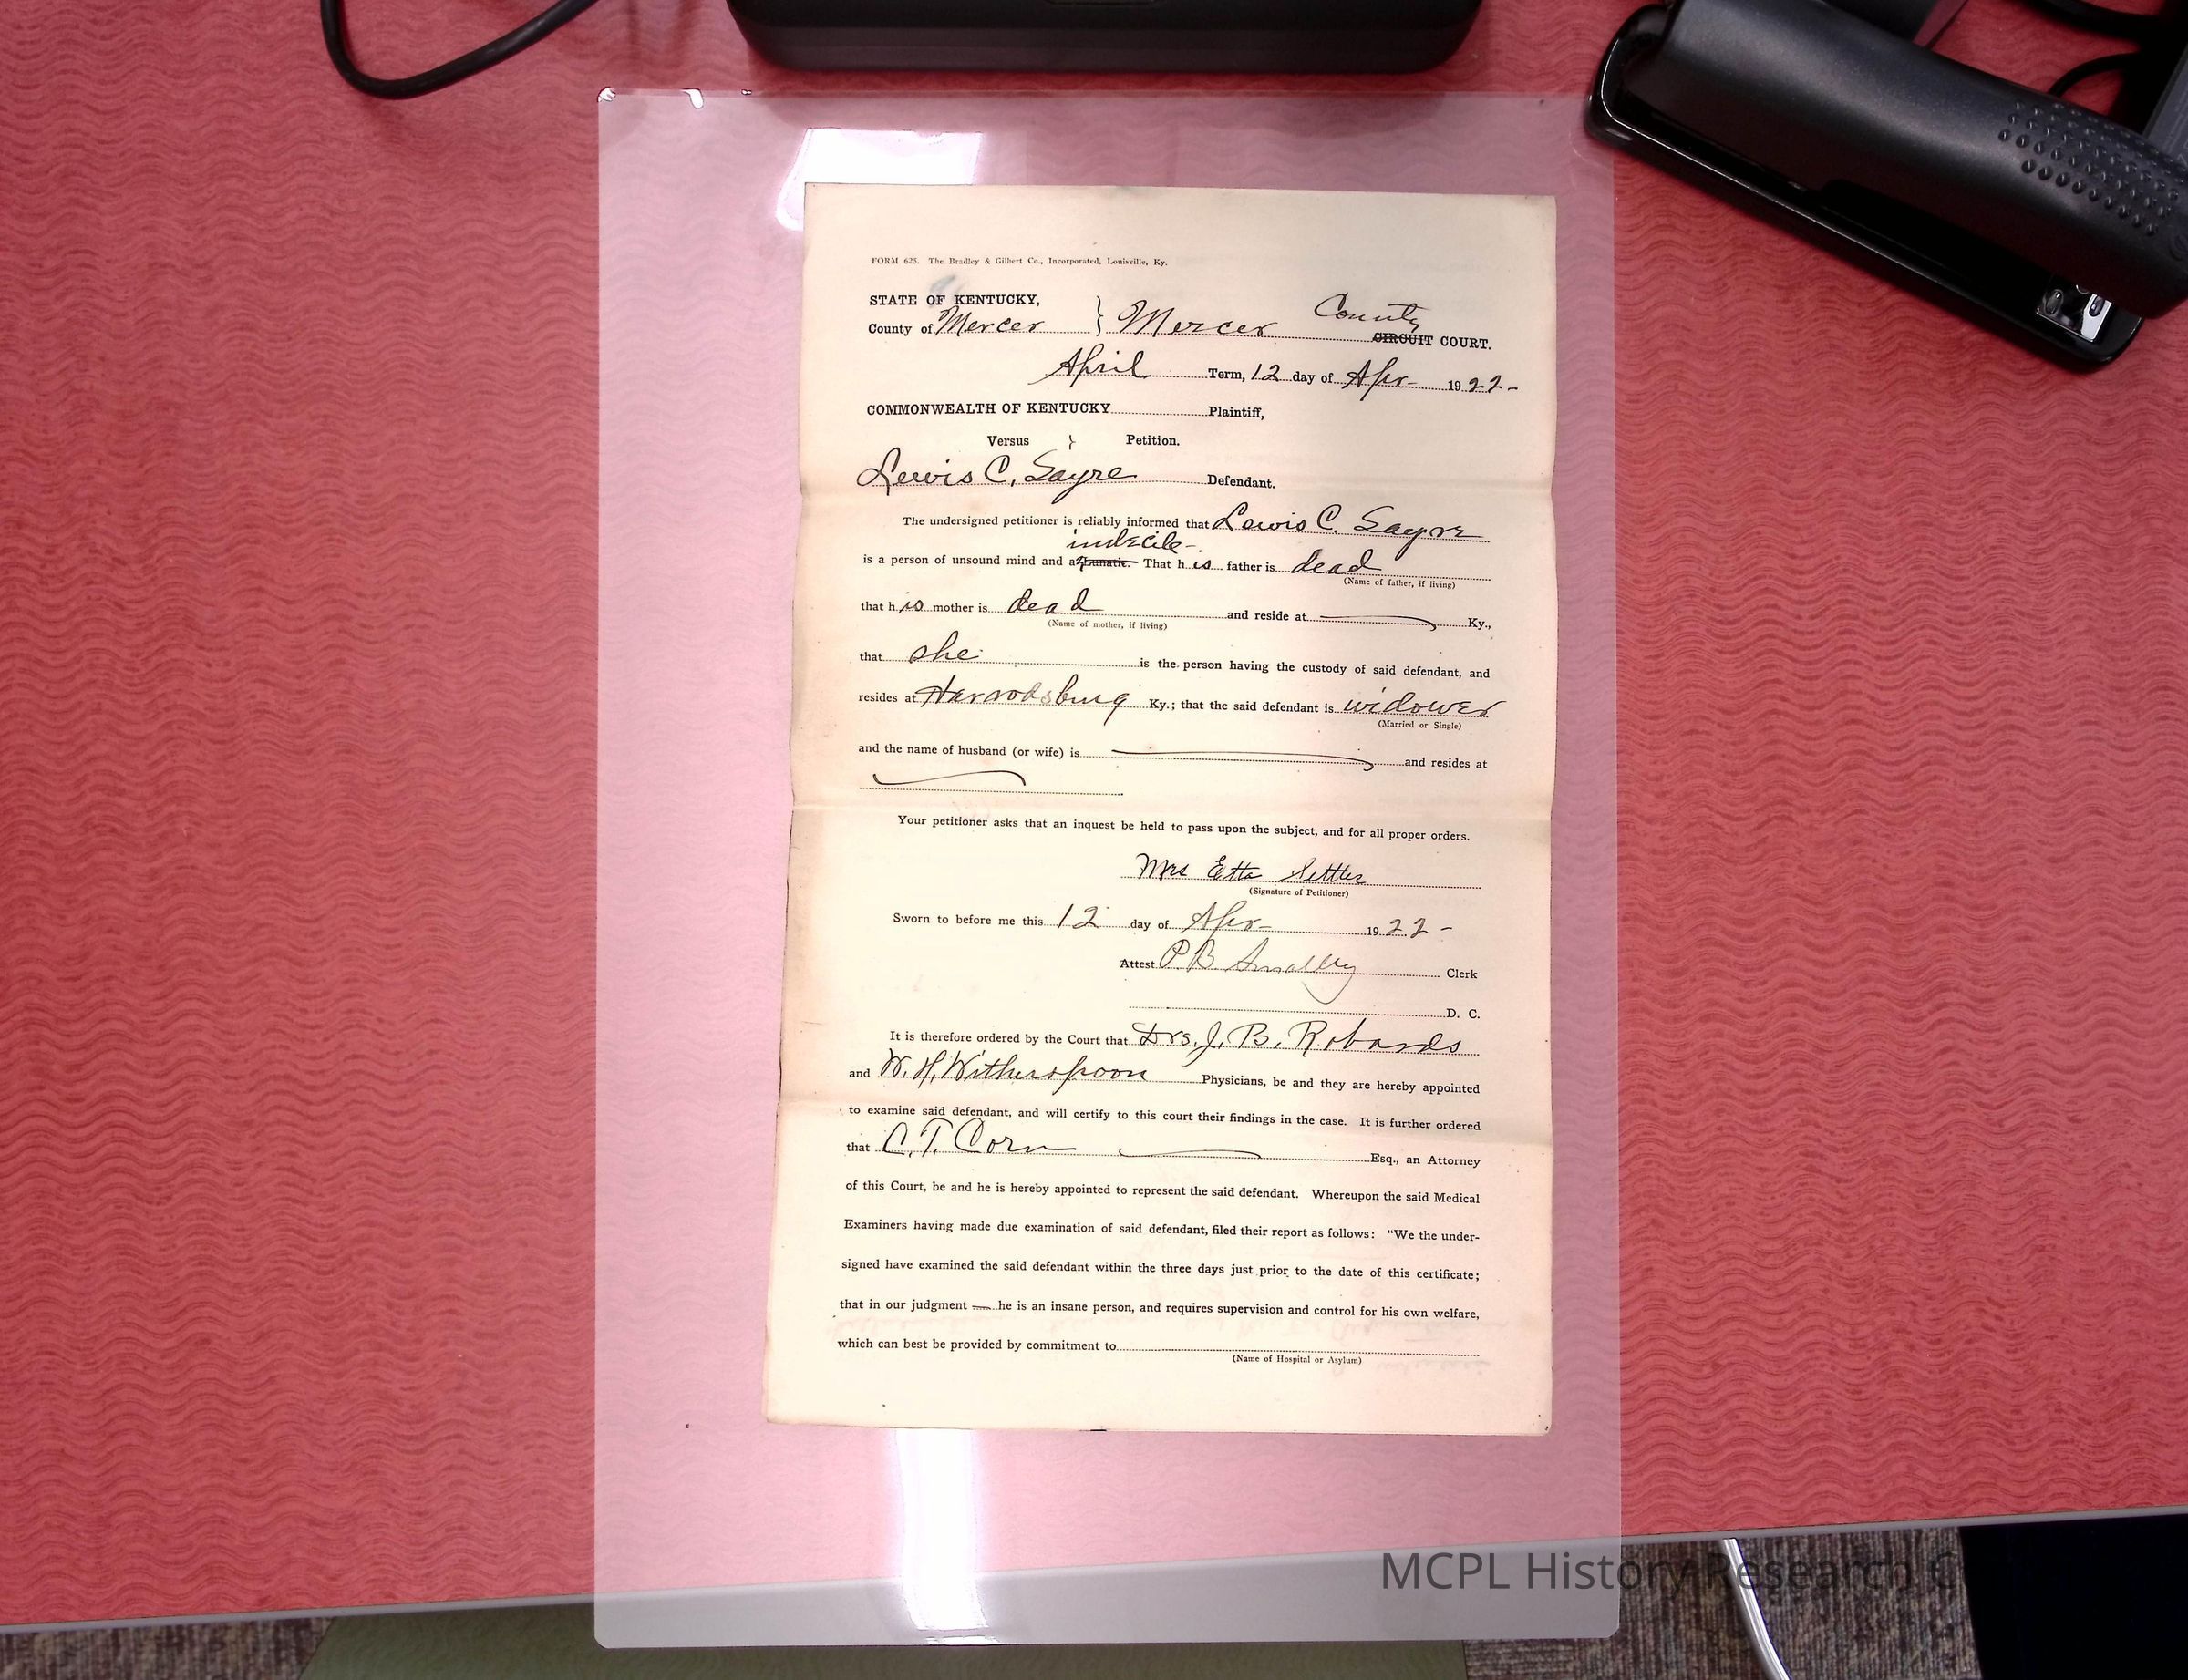 FORM 625. The Bradley & Gilbert Co., Incorporated, Louisville, Ky.
STATE OF KENTUCKY,
County of Mercer } Mercer County CIRCUIT COURT.
April Term, 12 day of Apr- 1922-
COMMONWEALTH OF KENTUCKY Plaintiff,
Versus } Petition.
Lewis C. Sayre Defendant.
The undersigned petitioner is reliably informed that Lewis C. Sayre
imbecile-
is a person of unsound mind and a Lunatic. That his father is dead
(Name of father, if living)
that his mother is dead and reside at Ky.,
(Name of mother, if living)
that she is the person having the custody of said defendant, and
resides at Harrodsburg Ky.; that the said defendant is widower
(Married or Single)
and the name of husband (or wife) is and resides at
Your petitioner asks that an inquest be held to pass upon the subject, and for all proper orders.
Mrs Etta Settles
(Signature of Petitioner)
Sworn to before me this 12 day of Apr- 1922-
Attest P.B. Smalley Clerk
D. C.
It is therefore ordered by the Court that Drs. J. B. Robards
and W. H. Witherspoon Physicians, be and they are hereby appointed
to examine said defendant, and will certify to this court their findings in the case. It is further ordered
that C. T. Corn Esq., an Attorney
of this Court, be and he is hereby appointed to represent the said defendant. Whereupon the said Medical
Examiners having made due examination of said defendant, filed their report as follows: "We the under-
signed have examined the said defendant within the three days just prior to the date of this certificate;
that in our judgment he is an insane person, and requires supervision and control for his own welfare,
which can best be provided by commitment to
(Name of Hospital or Asylum)
MCPL History Research